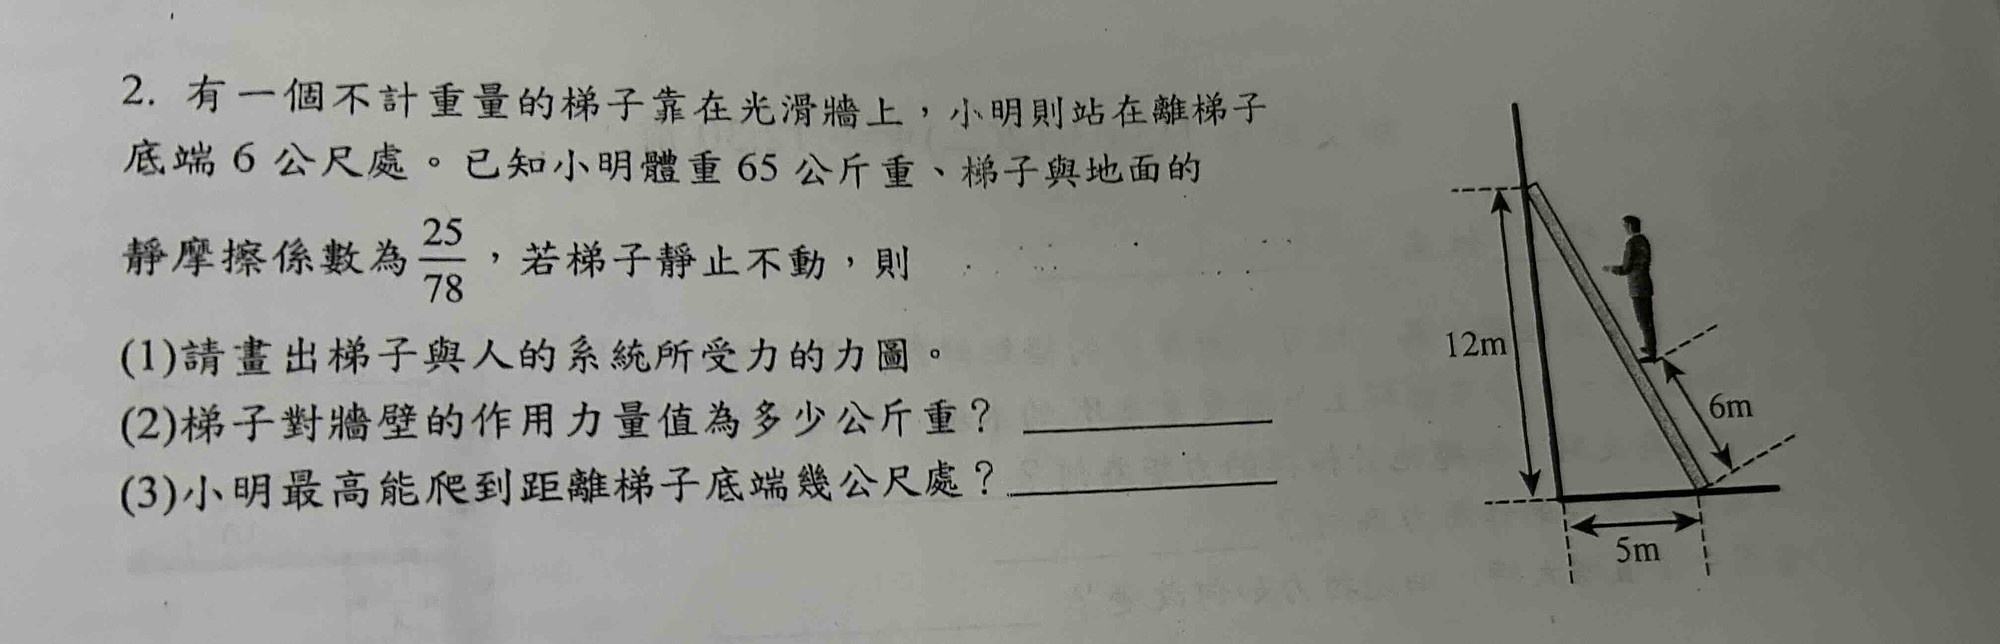 2. 有一個不計重量的梯子靠在光滑牆上，小明則站在離梯子
底端 6 公尺處。已知小明體重 65 公斤重、梯子與地面的
靜摩擦係數為 25/78 ，若梯子靜止不動，則
(1)請畫出梯子與人的系統所受力的力圖。
(2)梯子對牆壁的作用力量值為多少公斤重？
(3)小明最高能爬到距離梯子底端幾公尺處？
12m
6m
5m